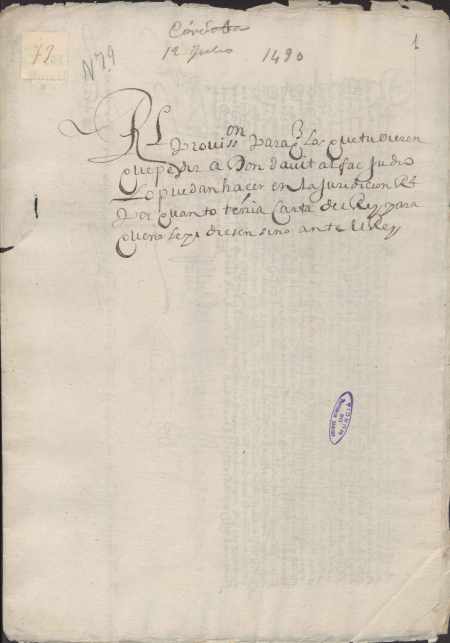 Córdoba
1
79
Nº 79
12 Julio 1490
Rl
Provisson para q los que tuvieren
que pedir a Don davit alfac Judio
Lo puedan hacer en la Juridicion Rl
Por quanto tenia Carta del Rey para
que no se pidiesen sino ante el Rey
DE
MURCIA